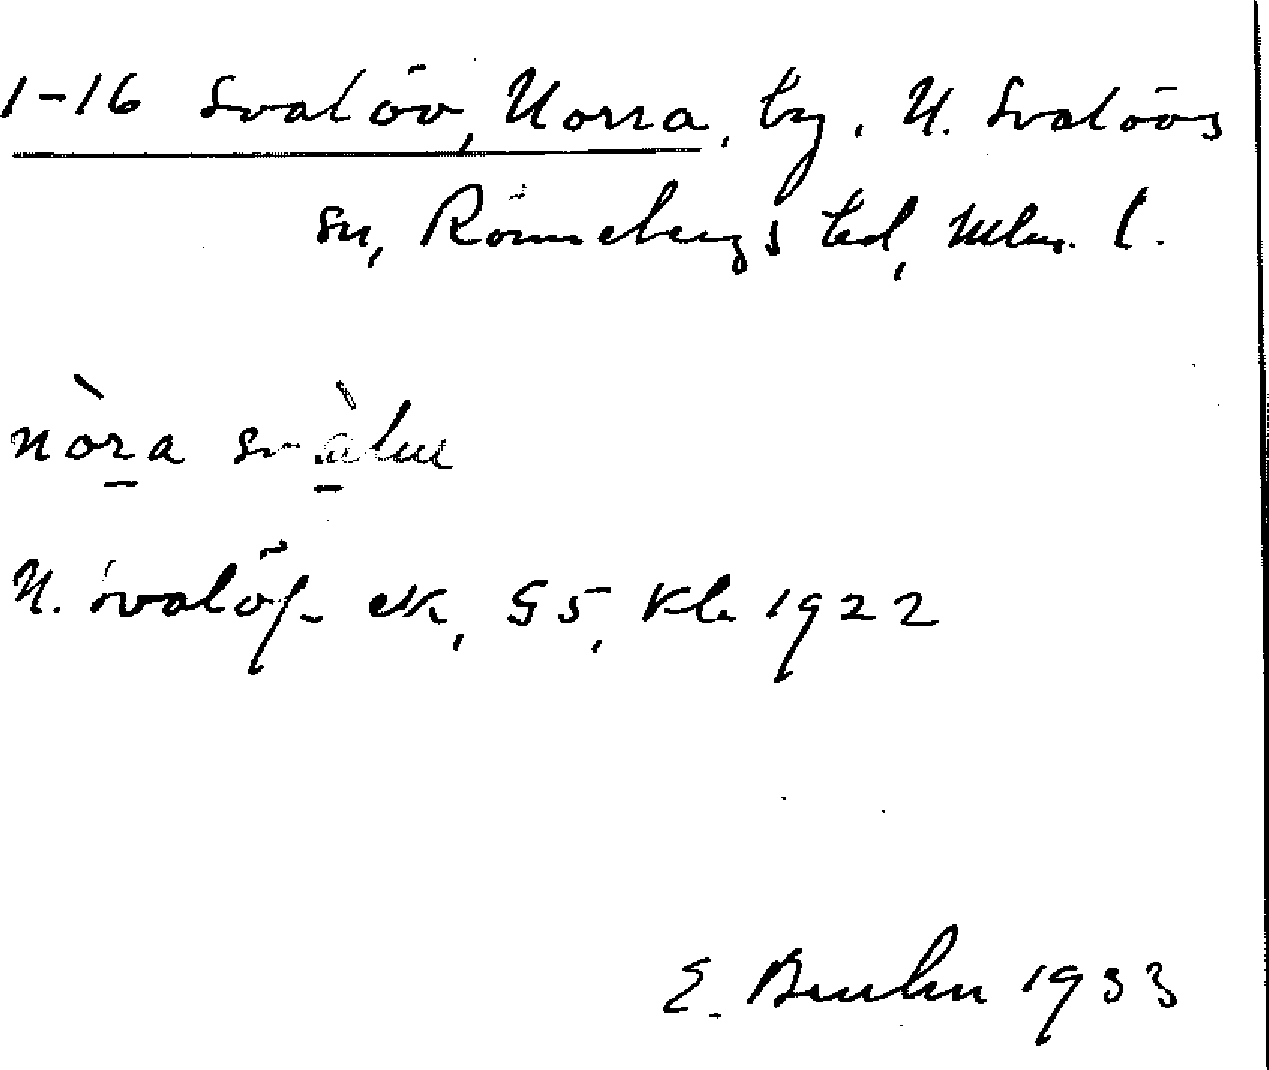 1-16 Svalöv, Norra, by. N. Svalövs
sn, Rönnebergs hd, Mlm. l.
nòra svàlu
N. Svalöf. ek, G5, Kb 1922
E. Bruhn 1933